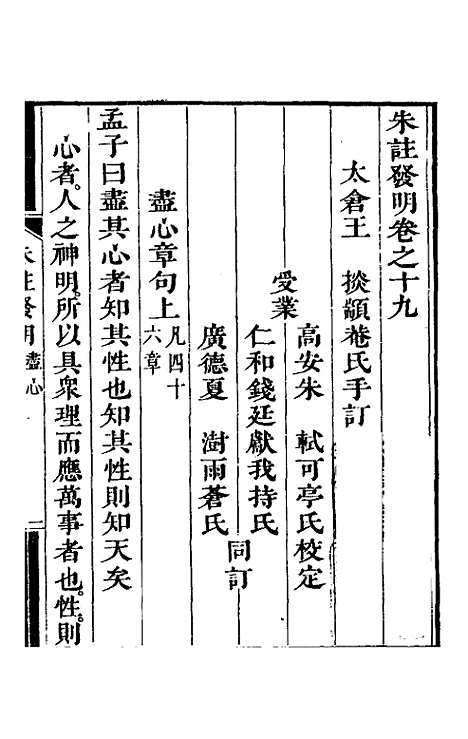 朱註發明卷之十九
太倉王　掞顓菴氏手訂
受業
高安朱　軾可亭氏校定
仁和錢廷獻我持氏
廣德夏　澍雨蒼氏
同訂
盡心章句上
凡四十
六章
孟子曰盡其心者知其性也知其性則知天矣
心者。人之神明。所以具衆理而應萬事者也。性。則
朱註發明
盡心
一